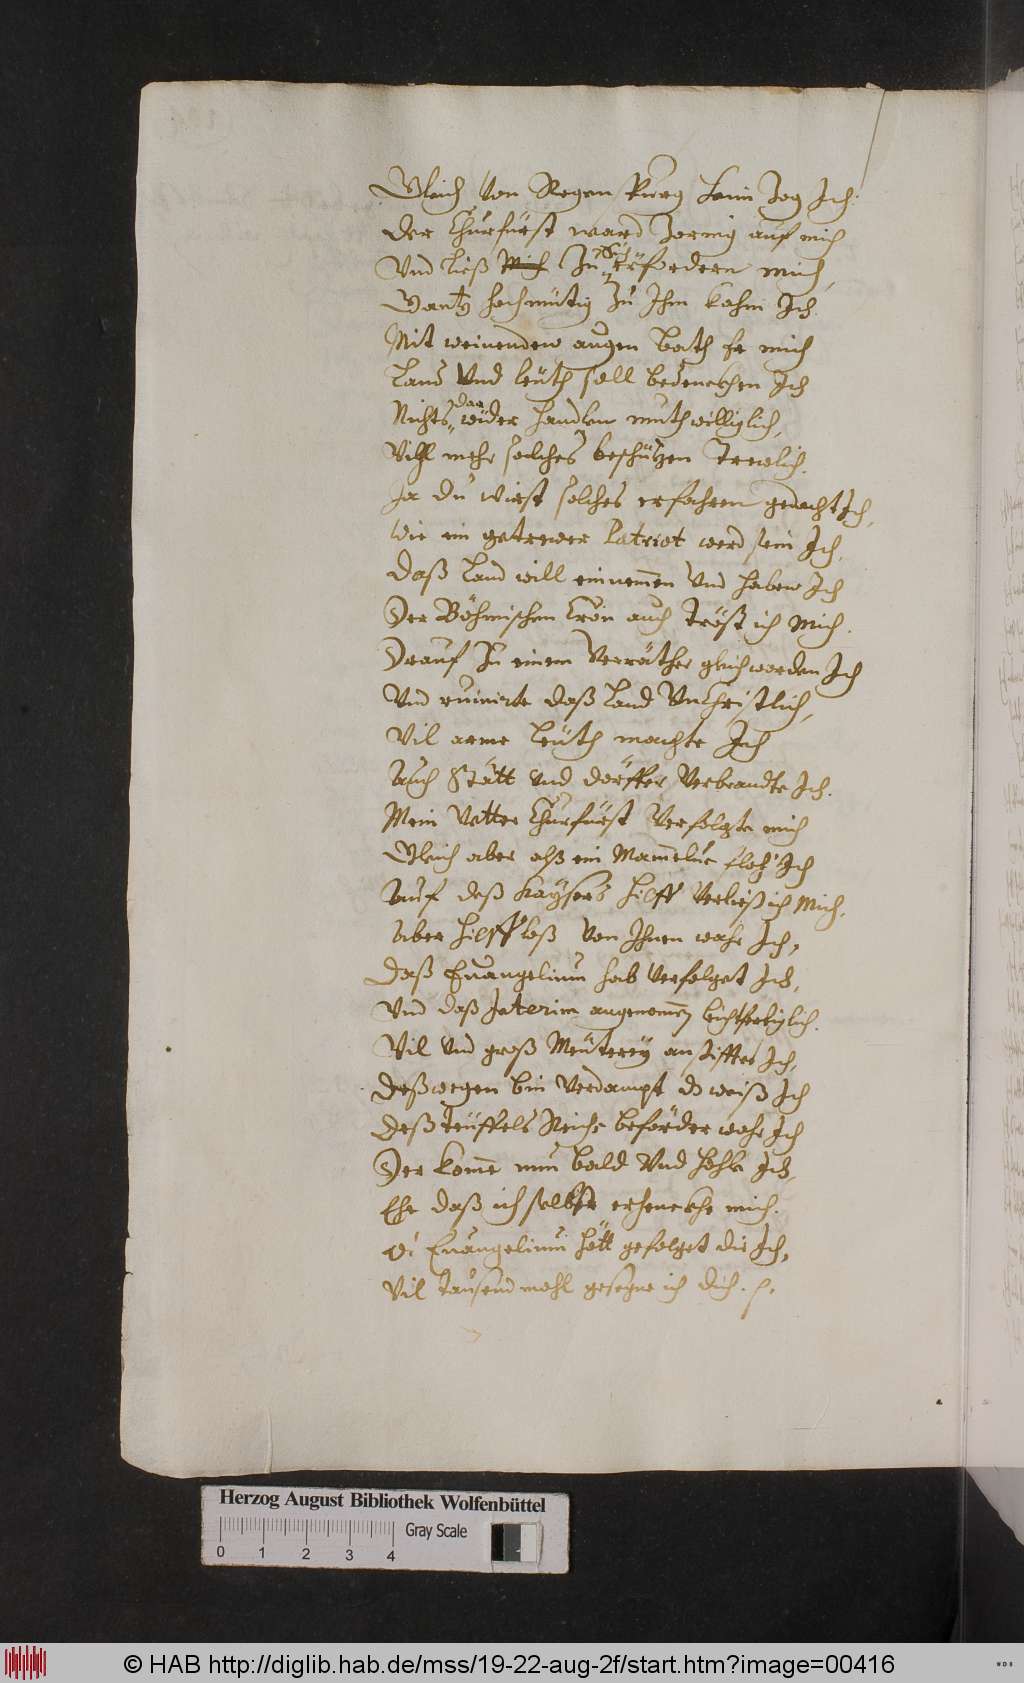 Gleich von Regenspurg heim Zog Ich:
Der Churfürst ward Zornig auf mich
Und ließ Mich Zu sich erfordern mich,
Gantz hochmütig Zu Ihm kahm Ich.
Mit weinenden augen bath Er mich
Land Und leüth soll bedenckhen Ich
Nichts darwider handlen muthwilliglich,
Vihl mehr solches beschützen Trewlich.
Ja du wirst solches erfahren gedacht Ich,
Wie ein getrewer Patriot werd sein Ich,
Daß Land will einnemen Und haben Ich
Der Böhmischen Cron auch tröst ich Mich.
Drauf Zu einem Verräther gleich worden Ich
Und ruinirte daß Land Unchristlich,
Vil arme leüth machte Ich
Auch Stätt Und dörffer Verbrandte Ich.
Mein Vetter Churfürst Verfolgte mich
Gleich aber alß ein Mameluc floh Ich
Auf deß Kaysers hilff Verließ ich Mich,
Aber hilffloß Von Ihnen wahr Ich,
Daß Evangelium hab Verfolget Ich,
Und daß Interim angenommen leichtfertiglich.
Vil Und groß Meüterey anstifftet Ich,
Deßwegen bin Verdampt do weiß Ich
Deß teüffels Reiche beförder wahr Ich
Der komme nun bald Und hohle Ich,
Ehe daß ich selbst erhenckhe mich.
O Evangelium hett gefolget dir Ich,
Vil tausend mahl gesegne ich dich.
Herzog August Bibliothek Wolfenbüttel
Gray Scale
0 1 2 3 4
© HAB http://diglib.hab.de/mss/19-22-aug-2f/start.htm?image=00416